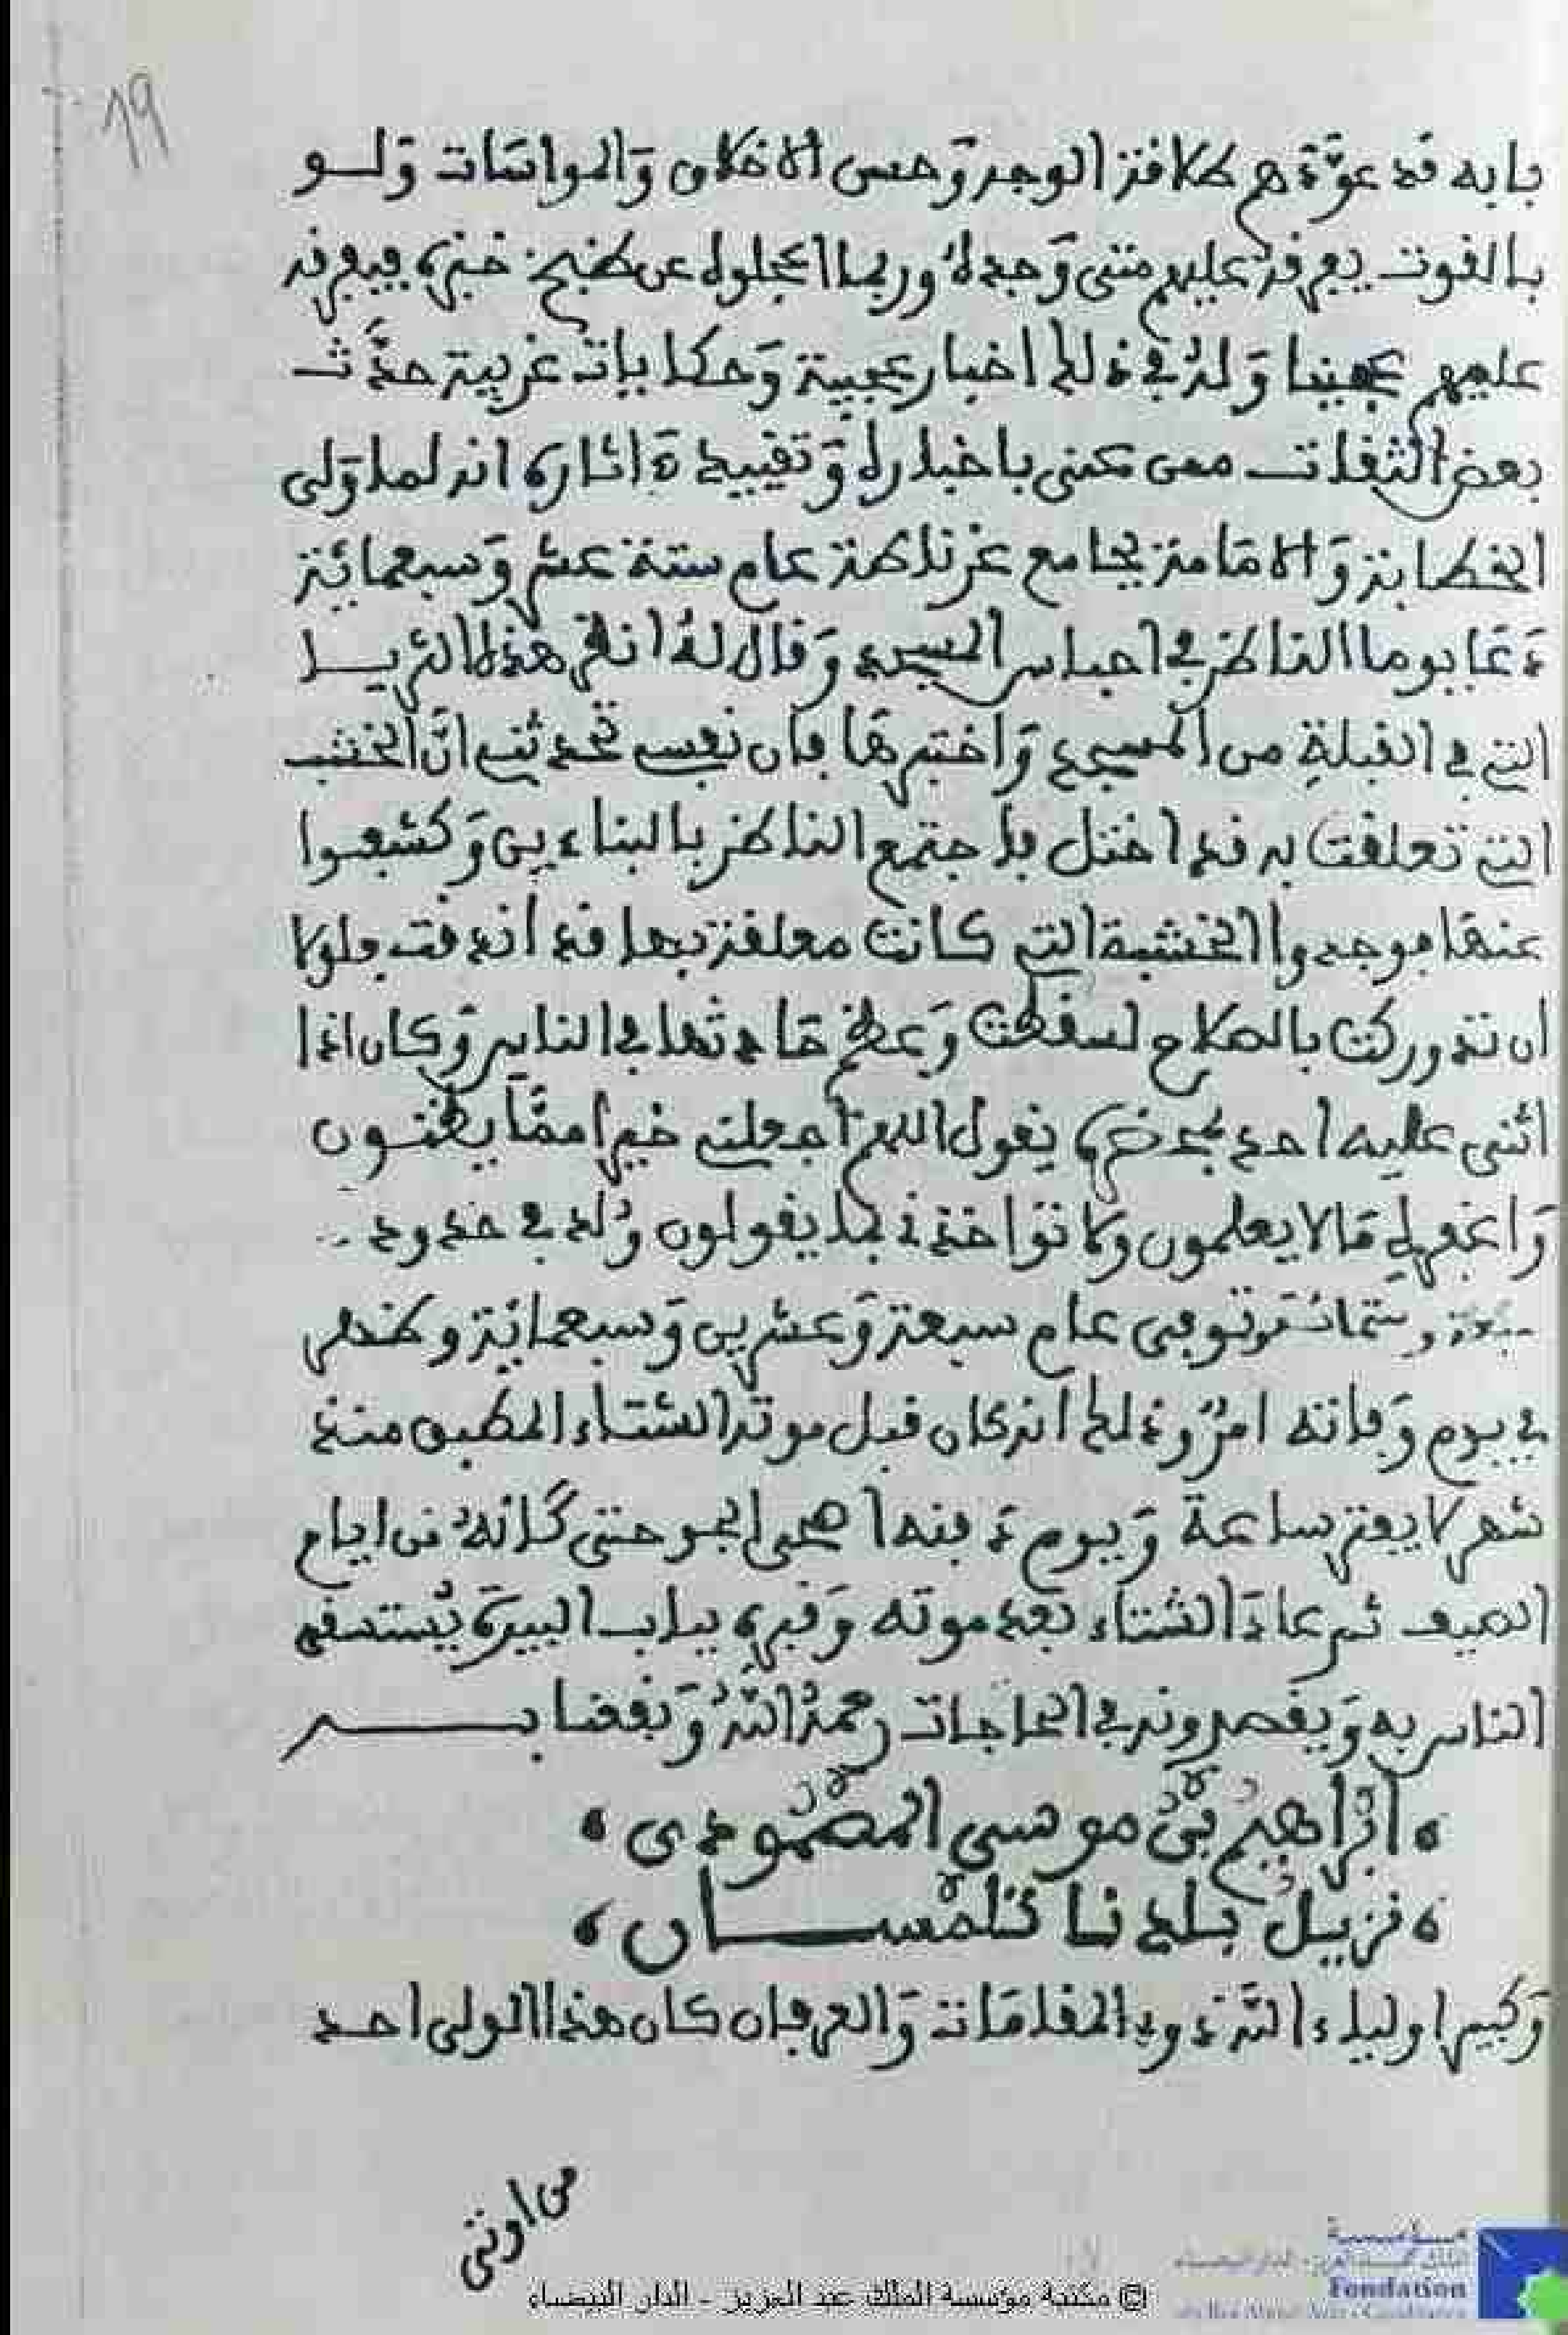 19
بابه قد عودهم طلاقة الوجه وحسن الاخلاق والمواسات ولو
بالقوت يفرقه عليهم متى وجده وربما اعجلوه عن طبخ خبزه فيفرقه
عليهم عجينا وله في ذلك اخبار عجيبة وحكايات غريبة حدث
بعض الثقات ممن عنى باخباره وتقييد ءاثاره انه لما ولى
الخطابة والامامة بجامع غرناطة عام ستة عشر وسبعمائة
دعا يوما الناظر في احباس المسجد وقال له انظر هذه الثريا
التي في القبلة من المسجد واختبرها فان نفسي تحدثني ان الخشب
التي تعلقت به قد اختل فاجتمع الناظر بالبناءين وكشفوا
عنها فوجدوا الخشبة التي كانت معلقة بها قد اندقت فلولا
ان تدوركت بالصلاح لسقطت وعظم حادثها في الناس وكان اذا
اثنى عليه احد بمحضره يقول اللهم اجعلني خيرا مما يظنون
واغفر لي ما لا يعلمون ولا تواخذني بما يقولون ولد في حدود
وستمائة وتوفى عام سبعة وعشرين وسبعمائة وظهر
في يوم وفاته امر وذلك انه كان قبل موته الشتاء المطبق منذ
شهر لا يفتر ساعة ويوم دفنه اصحى الجو حتى كانه من ايام
الصيف ثم عاد الشتاء بعد موته وقبره بباب البيرة يستسقى
الناس به ويقصدونه في الحاجات رحمه الله ونفعنا به
ابراهيم بن موسى المصمودى
نزيل بلدنا تلمسان
وكبير اولياء الله ذوي المقامات والعرفان كان هذا الولى احد
من اوتى
مؤسسة
Fondation
© مكتبة مؤسسة الملك عبد العزيز - الدار البيضاء